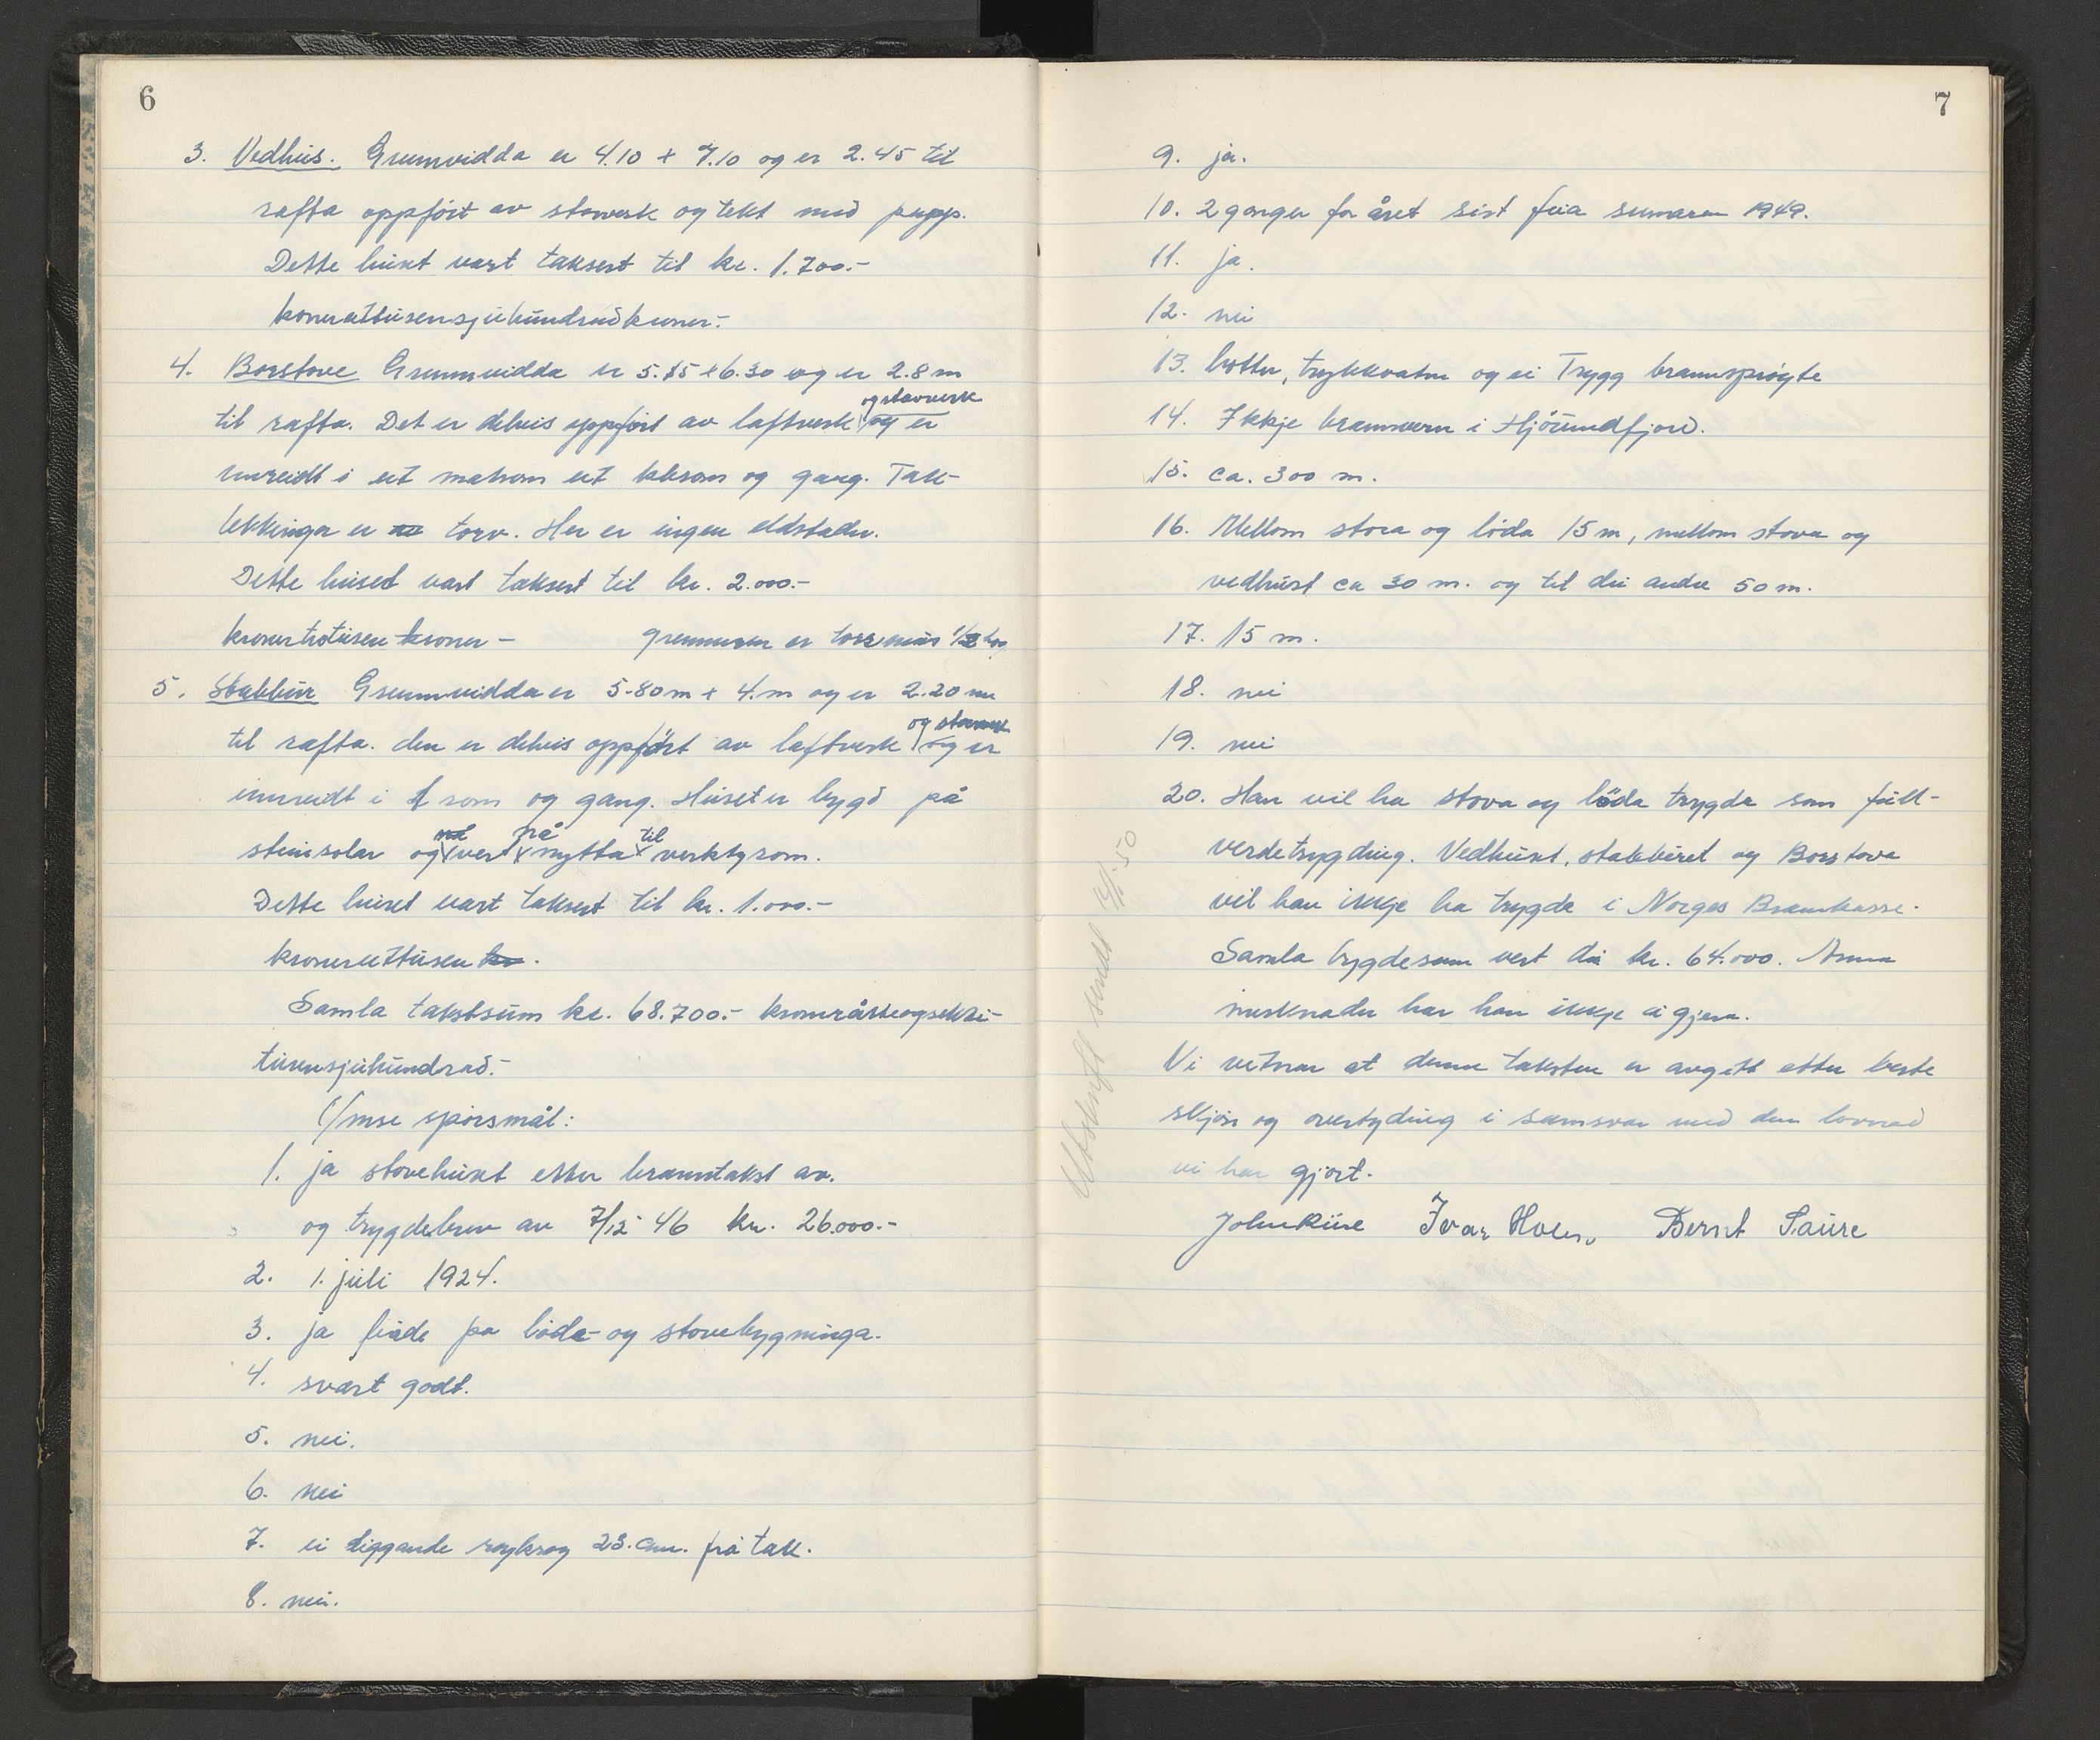 6
3. Vedhus. Grunnvidda er 4.10 + 7.10 og er 2.45 til
rafta oppført av stavverk og tekt med papp.
Dette huset vart taksert til kr. 1.700.-
kronereittusensjuhundradkroner.-
4. Borstove Grunnvidda er 5.85 + 6.30 og er 2.8 m
og stavverk
til rafta. Det er delvis oppført av laftverk og er
innreidt i eit matrom eit klerom og gang. Tak-
tekkinga er av torv. Her er ingen eldstader.
Dette huset vart taksert til kr. 2.000.-
kronertotusen kroner - grunnmuren er
5. Stabbur Grunnvidda er 5.80 m + 4. m og er 2.20 m
og stavverk
til rafta. den er delvis oppført av laftverk og er
innreidt i 1 rom og gang. Huset er bygd på
nå til
steinsolar og vert nytta verktyrom.
Dette huset vart taksert til kr. 1.000.-
kronereittusen kr.
Samla takstsum kr. 68.700.- kroneråtteogseksti-
tusensjuhundrad.-
Ymse spørsmål:
1. ja stovehuset etter branntakst av.
og trygdebrev av 7/12 46 kr. 26.000.-
2. 1. juli 1924.
3. ja både på løda- og stovebygninga.
4. svært godt.
5. nei.
6. nei
7. ei liggande røykrøy 23. cm. frå tak.
8. nei.
7
9. ja.
10. 2 gonger for året sist feia sumaren 1949.
11. ja.
12. nei
13. bøtter, trykkvatn og ei Trygg brannsprøyte
14. Ikkje brannvern i Hjørundfjord.
15. ca. 300 m.
16. Mellom stova og løda 15 m, mellom stova og
vedhuset ca 30 m. og til dei andre 50 m.
17. 15 m.
18. nei
19. nei
20. Han vil ha stova og løda trygda som full-
verdetrygding. Vedhuset, stabburet og Borstova
vil han ikkje ha trygda i Norges Brannkasse.
Samla trygdesum vert då kr. 64.000. Anna
merknader har han ikkje å gjera.
Vi vitnar at denne taksten er avgitt etter beste
skjøn og overtyding i samsvar med den lovnad
vi har gjort.
John Riise Ivar Holen Bernt Saure
Utskrift sendt 4/1 50